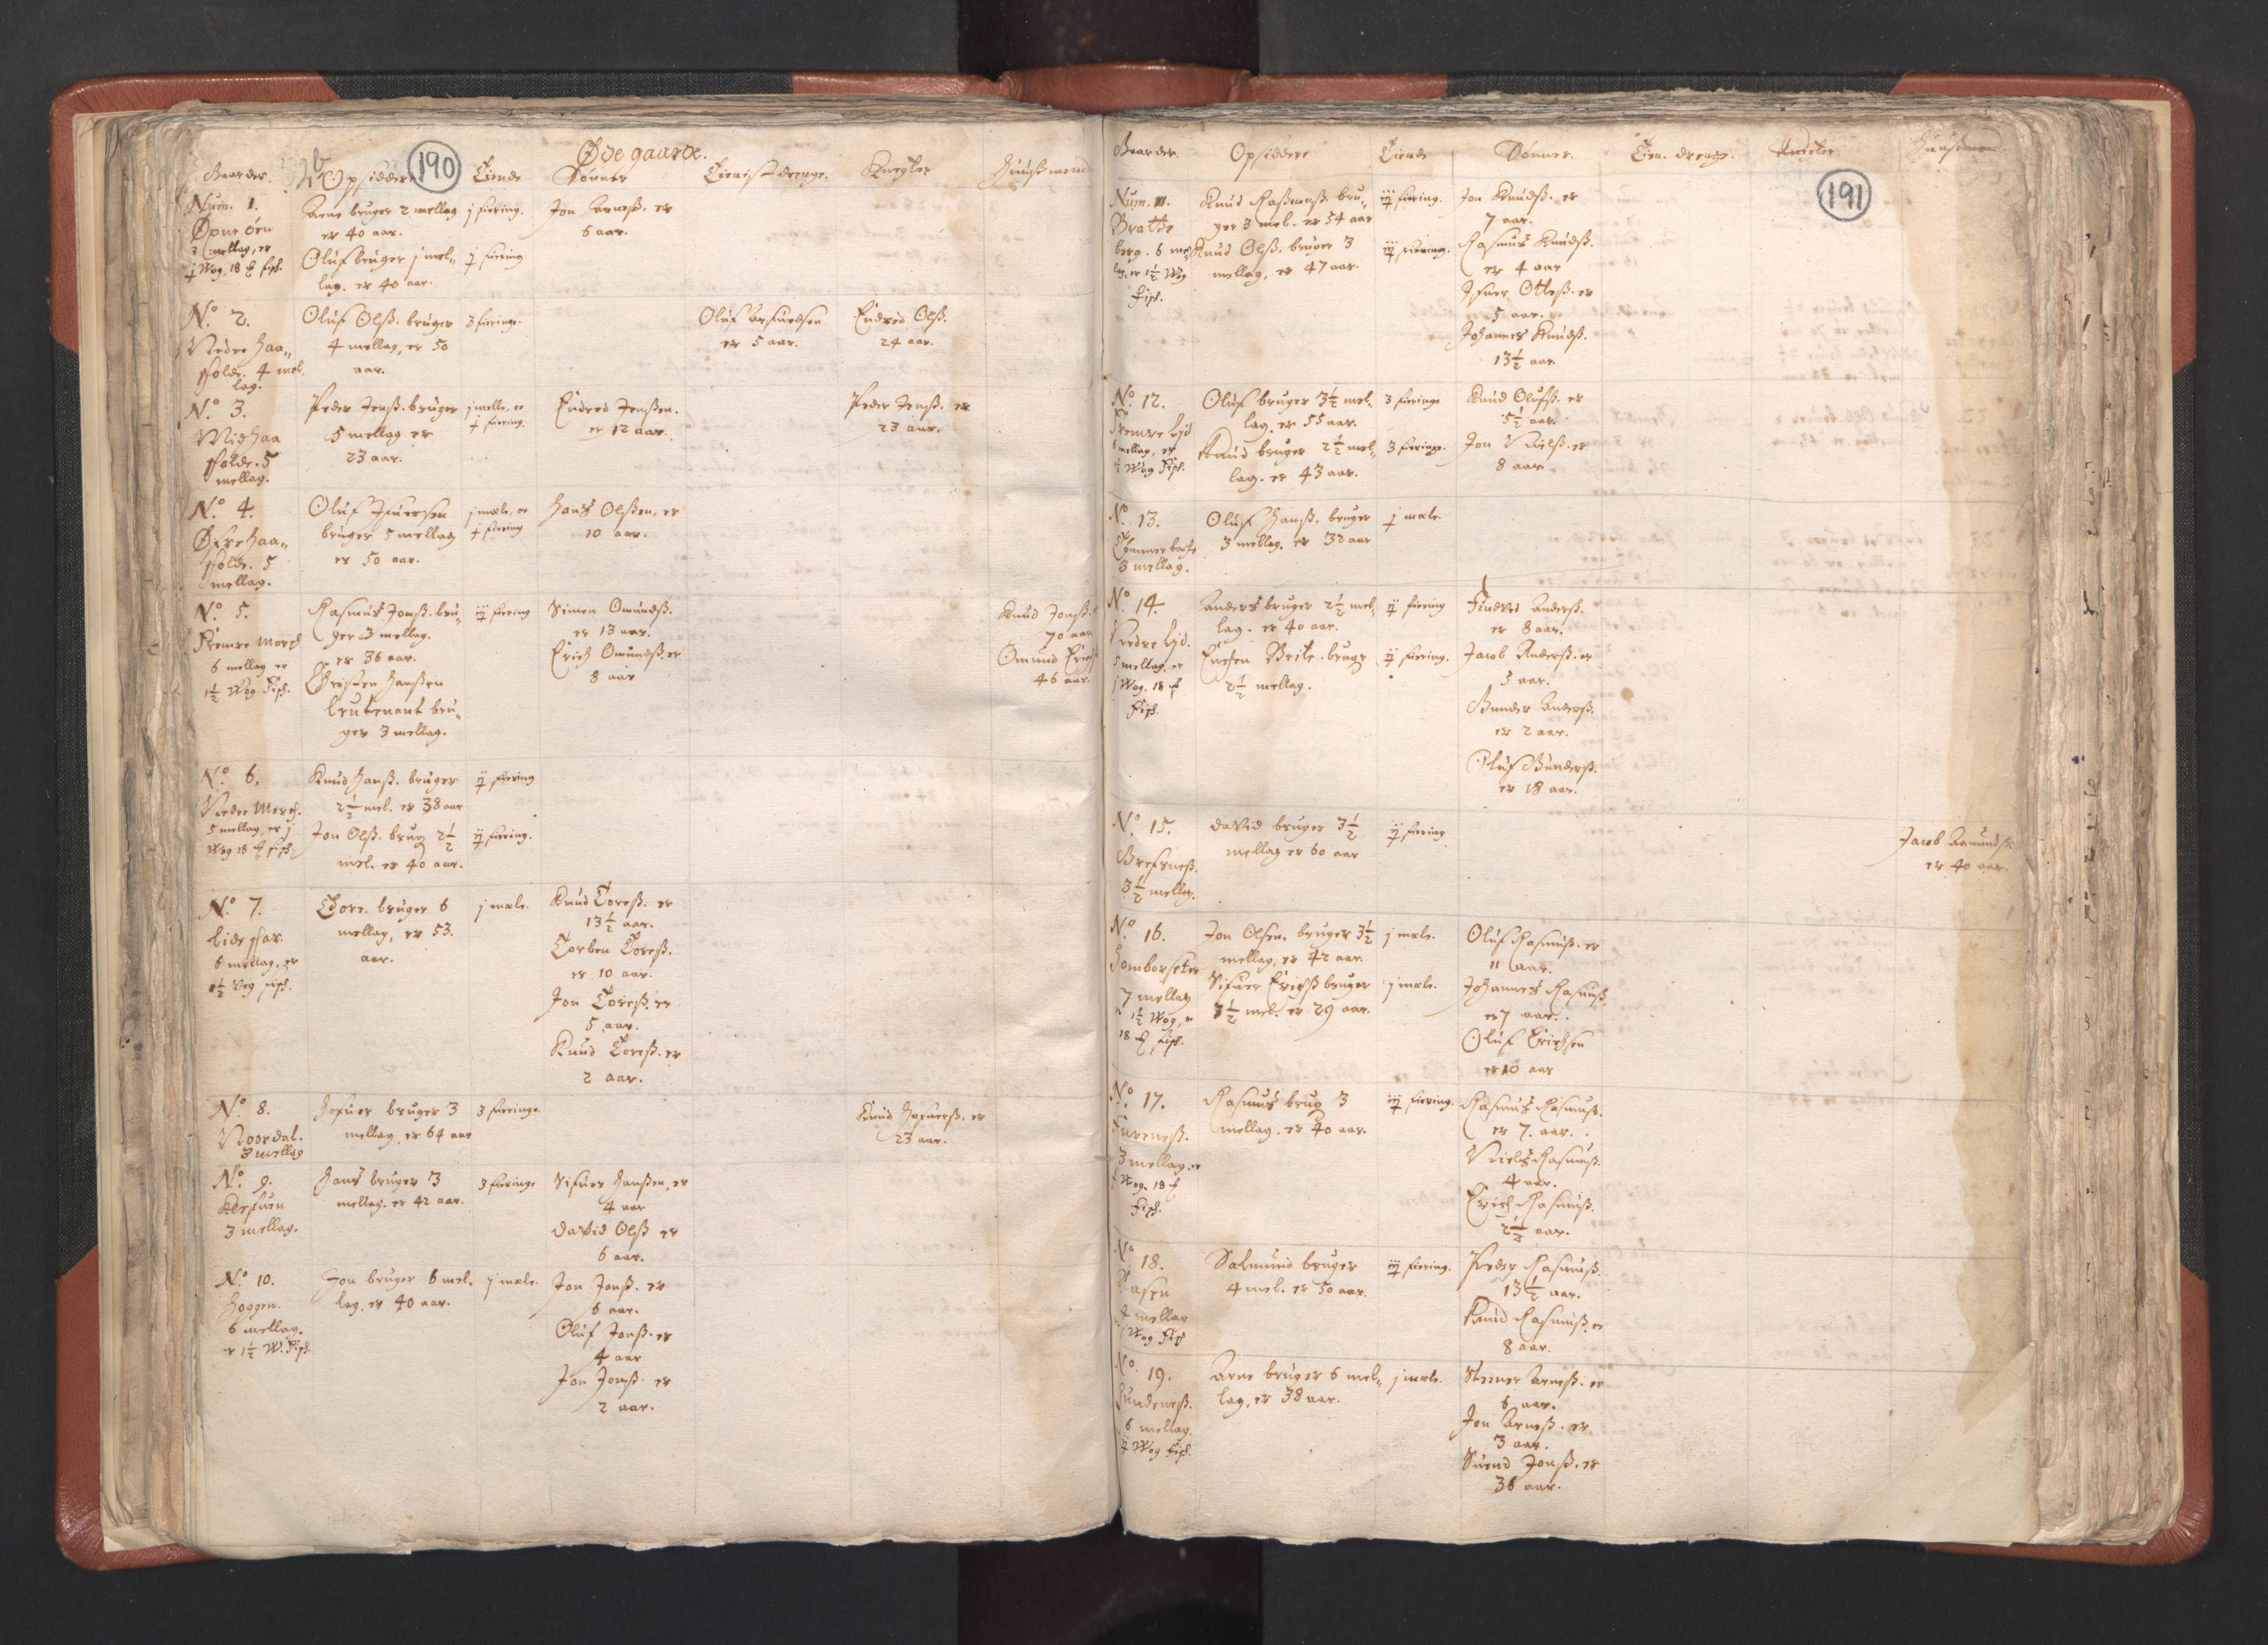 190
Øde gaarde.
Gaarder. Opsiddere Tiende Sønner Tienist drenge. Knegter Huusmend
Num. 1. Arne bruger 2 mellag j fiering. Jon Arneß. er
er 40 aar. 6 aar.
3 mellag, er
j Wog, 18 fisk.
Oluf bruger j mel- j fiering
lag. er 40 aar.
No. 2. Oluf Olß. bruger 3 fieringe. Oluf Endred Olß.
Nedre Haa- 4 mellag, er 50 er 5 aar. 24 aar.
4 mel aar.
lag.
No. 3. Peder Jenß. bruger j melle, er Endred Jenßen. Peder Jenß. er
Mid Haa 5 mellag er j fiering. er 12 aar. 23 aar.
23 aar.
mellag.
No. 4. Oluf Ifuersen j mæle, er Hans Olßen, er
Øfre Haa- bruger 5 mellag j fiering 10 aar.
er 50 aar.
mellag.
No. 5. Rasmus Jonß. bru- ij fiering Simen Omundß. Knud Jonß.
Fremre Morch ger 3 mellag. er 13 aar. 70 aar
6 mellag er er 36 aar. Erich Omundß. er Omund Erichß
1½ Wog Fisk. Christen Hanßen 8 aar 46 aar.
leutenant bru-
ger 3 mellag.
No. 6. Knud Hanß. bruger ij fiering
Nedre Morch. 2½ mel. er 38 aar
5 mellag, er j Jon Olß. brug 2½ ij fiering.
Wog 18 fisk. mel. er 40 aar.
No. 7. Thore. bruger 6 j mæle. Knud Toreß. er
mellag, er 53. 13½ aar.
6 mellag, er aar. Torben Toreß.
1½ Vog fisk. er 10 aar.
Jon Toreß. er
5 aar.
Knud Toreß. er
2 aar.
No. 8. bruger 3 3 fieringe. Knud er
Noordal. mellag, er 64 aar 23 aar.
3 mellag
No. 9. Hans bruger 3 3 fieringe Sifuer Hanßen, er
mellag. er 42 aar. 4 aar
3 mellag. David Olß er
6 aar.
No. 10. Jon bruger 6 mel. j mæle. Jon Jonß. er
Hoggen. lag, er 40 aar. 6 aar.
6 mellag. Oluf Jonß. er
er 1½ W. Fisk. 4 aar
Jon Jonß. er
2 aar.
191
Gaarder. Opsiddere Tiende Sønner. Tien. drenge. Knegter. Huusmend.
Num. 11. Knud Raßmusß. bru- iij fiering. Jon Knudß. er
Bratte ger 3 mel. er 54 aar 7 aar.
berg. 6 mel Knud Olß. bruger 3 iij fiering. Rasmus Knudß.
lag, er 1½ Wog mellag, er 47 aar. er 4 aar
Fisk. Ifuer Otteß. er
5 aar.
Johannes Knudß.
13½ aar.
No. 12. Oluf bruger 3½ mel. 3 fieringe Knud Olufß. er
Fremre Lid lag. er 55 aar. 5½ aar.
6 mellag, er Knud bruger 2½ mel- 3 fieringe. Jon Nielß. er
1½ Wog Fisk. lag. er 43 aar. 8 aar.
No. 13. Oluf Hanß. bruger j mæle.
3 mellag. er 32 aar
3 mellag.
No. 14. Anders bruger 2½ mel- ij fiering Findred Anderß.
Nedre Lid. lag. er 40 aar. er 8 aar.
5 mellag, er Enchen Brite. brugr ij fiering. Jacob Anderß. er
j Wog. 18 2½ mellag. 5 aar.
Fisk. Gunder Anderß.
er 2 aar.
Oluf Gunderß.
er 18 aar.
No. 15. David bruger 3½ ij fiering Jacob Amundß:
mellag er 60 aar er 40 aar.
3½ mellag.
No. 16. Jon Olsen. bruger 3½ j mæle. Oluf Rasmusß. er
mellag, er 42 aar. 11 aar.
7 mellag Sifuer Erichß bruger j mæle. Johannes Rasmusß.
1½ Wog, 3½ mel. er 29 aar. er 7 aar.
18 fisk. Oluf Erichsen
er 10 aar
No. 17. Rasmus brug 3 iij fiering. Rasmus Rasmusß.
Fureneß. mellag. er 40 aar. er 7. aar.
3 mellag. er Niels Rasmusß.
j Wog. 18 4 aar.
Fisk. Erich Rasmusß.
2½ aar.
No. 18. Salmund bruger iij fiering. Peder Rasmusß.
4 mel. er 50 aar. 13½ aar.
4 mellag Knud Rasmusß. er
j Wog Fisk 8 aar.
No. 19. Arne bruger 6 mel- j mæle. Steener Arneß. er
Sundeneß. lag, er 38 aar. 6 aar.
6 mellag. Jon Arneß. er
Wog fisk. 3 aar.
Suend Jonß. er
36 aar.